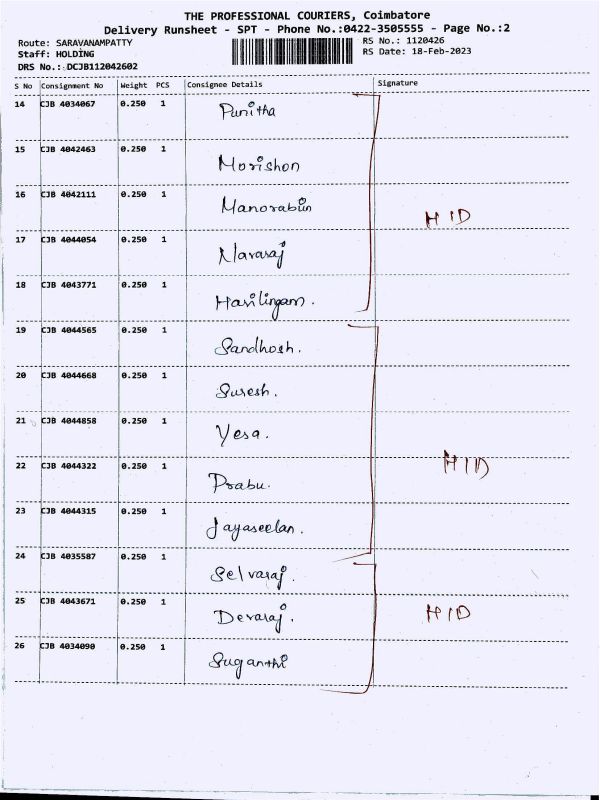 THE PROFESSIONAL COURIERS, Coimbatore
Delivery Runsheet - SPT - Phone No.:0422-3505555 - Page No.:2
Route: SARAVANAMPATTY
RS No.: 1120426
Staff: HOLDING
RS Date: 18-Feb-2023
DRS No.: DCJB112042602
S No Consignment No Weight PCS Consignee Details Signature
14 CJB 4034067 0.250 1 Punitha
15 CJB 4042463 0.250 1 Morishon
16 CJB 4042111 0.250 1 Manorabin
H/D
17 CJB 4044054 0.250 1 Navaraj
18 CJB 4043771 0.250 1 Harilingam.
19 CJB 4044565 0.250 1 Sandhosh.
20 CJB 4044668 0.250 1 Suresh.
21 CJB 4044858 0.250 1 Yesa.
22 CJB 4044322 0.250 1 Prabu.
H/D
23 CJB 4044315 0.250 1 Jayaseelan.
24 CJB 4035587 0.250 1 Selvaraj.
25 CJB 4043671 0.250 1 Devaraj.
H/D
26 CJB 4034090 0.250 1 Suganthi